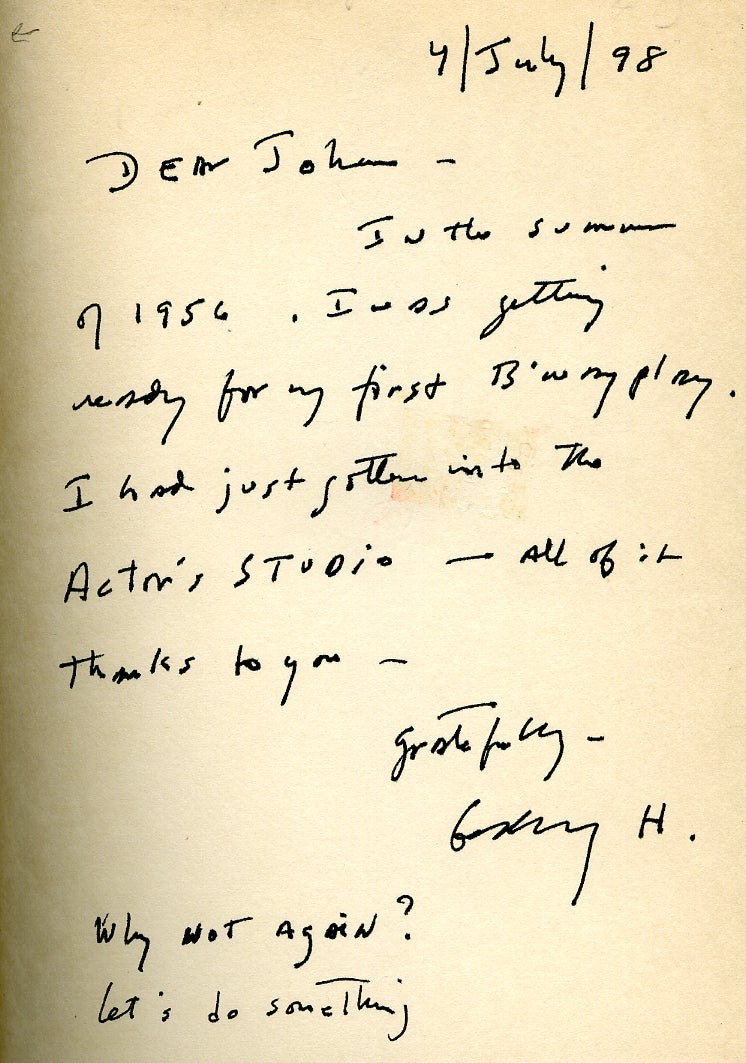 4/July/98
DEAR Johan —
In the summer
of 1956. I was getting
ready for my first B'way play.
I had just gotten into the
Actor's STUDiO — All of it
thanks to you —
Gratefully —
H.
Why NOT AgAiN?
Let's do something